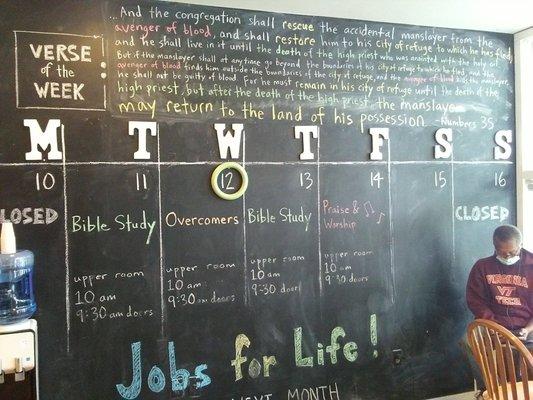 ...And the congregation shall rescue the accidental manslayer from the
avenger of blood, and shall restore him to his city of refuge to which he has fled,
and he shall live in it until the death of the high priest who was anointed with the holy oil.
But if the manslayer shall at any time go beyond the boundaries of his city of refuge to which he fled, and the
avenger of blood finds him outside the boundaries of his city of refuge, and the avenger of blood slays the manslayer,
he shall not be guilty of blood. For he must remain in his city of refuge until the death of the
high priest, but after the death of the high priest the manslayer
may return to the land of his possession. -Numbers 35
VERSE
of the
WEEK
M T W T F S S
10 11 12 13 14 15 16
CLOSED
Bible Study
Overcomers
Bible Study
Praise &
Worship
CLOSED
upper room
10 am
9:30 am doors
upper room
10 am
9:30 am doors
upper room
10 am
9:30 door
upper room
10 am
9:30 doors
Jobs for Life!
NEXT MONTH
VIRGINIA
VT
TECH